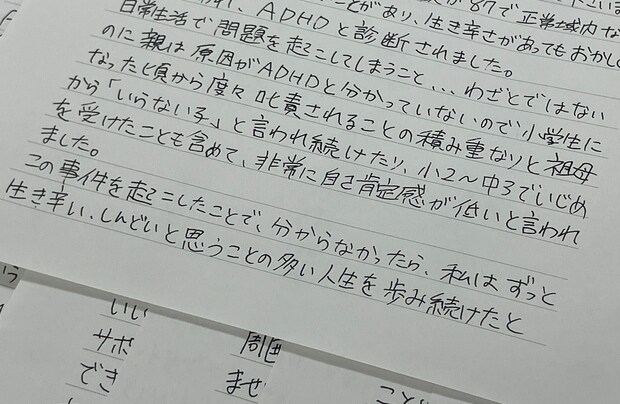 とがあり、生き辛さがあってもおかし
、ADHDと診断されました。
日常生活で問題を起こしてしまうこと...わざとではない
のに親は原因がADHDと分かっていないので小学生に
なった頃から度々叱責されることの積み重なりと祖母
から「いらない子」と言われ続けたり、小2〜中3でいじめ
を受けたことも含めて、非常に自己肯定感が低いと言われ
ました。
この事件を起こしたことで、分からなかったら、私はずっと
生き辛い、しんどいと思うことの多い人生を歩み続けたと
いい
サポ
でき
周囲
まぜ